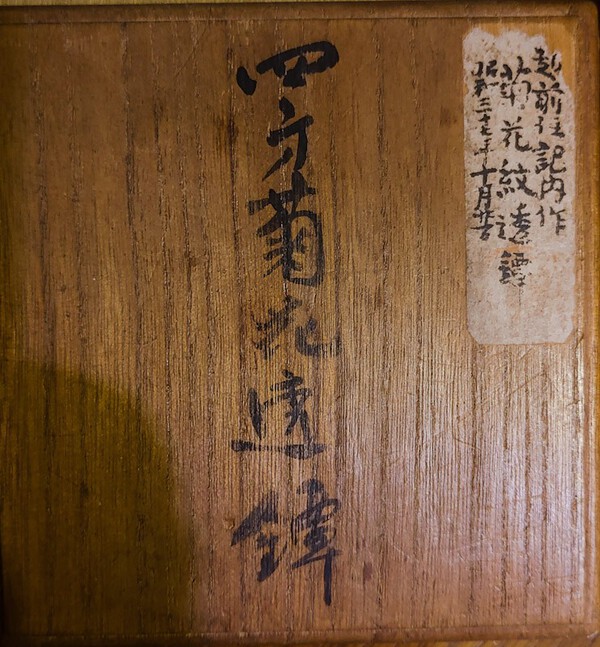 越前住記内作
菊花紋透鐔
昭和三十七年十月
四方菊花透鐔